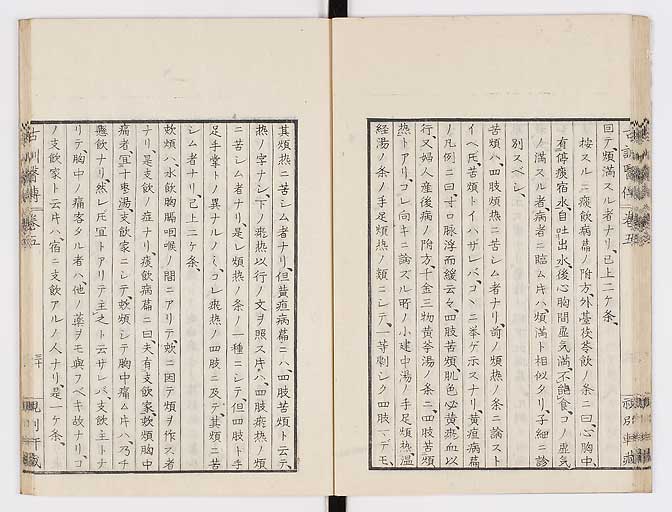 回テ煩滿スル者ナリ、已上二ケ条、
按スルニ痰飲病篇ノ附方、外臺茯苓飲ノ条ニ曰、心胸中
有停痰宿水、自吐出水後、心胸間虚气滿、不能食、コノ虚气
ノ滿スル者、病者ニ臨ム片ハ、煩滿ト相似タリ、子細ニ診
別スベシ、
苦煩ハ、四肢煩熱ニ苦シム者ナリ、前ノ煩熱ノ条ニ論スト
イヘ𪜈、苦煩トイハザレバ、コヽニ挙ゲ示スナリ、黄疸病篇
ノ凡例ニ曰、寸口脉浮而緩云々、四肢苦煩、肌色必黄、瘀血以
行、又婦人産後病ノ附方、千金三物黄芩湯ノ条ニ、四肢苦煩
熱トアリ、コレ向キニ論スル所ノ小建中湯ノ手足煩熱、温
経湯ノ条ノ手足煩熱ノ類ニシテ、一等劇シク四肢マデモ、
其煩熱ニ苦シム者ナリ、但黄疸病篇ニハ、四肢苦煩ト云テ、
熱ノ字ナシ、下ノ瘀熱以行ノ文ヲ照ス片ハ、四肢瘀熱ノ煩
ニ苦シム者ナリ、是レ煩熱ノ条ノ一種ニシテ、但四肢ト手
足手掌トノ異ナルノミ、コレ瘀熱ノ四肢ニ及テ、其煩ニ苦
シム者ナリ、已上二ケ条、
欬煩ハ、水飲胸膈咽喉ノ間ニアリテ、欬ニ因テ煩ヲ作ス者
ナリ、是支飲ノ症ナリ、痰飲病篇ニ曰、夫有支飲家、欬煩胸中
痛者、宜十枣湯、支飲家ニシテ、欬煩シテ胸中痛ム片ハ、乃チ
懸飲ナリ、然レ𪜈宜トアリテ、主之ト云サレバ、支飲主トナ
リテ胸中ノ痛客タル者ハ、他ノ薬ヲモ與フベキ故ナリ、コ
ノ支飲家ト云片ハ、宿ニ支飲アルノ人ナリ、是一ケ条、
古訓醫傳 巻五
三十